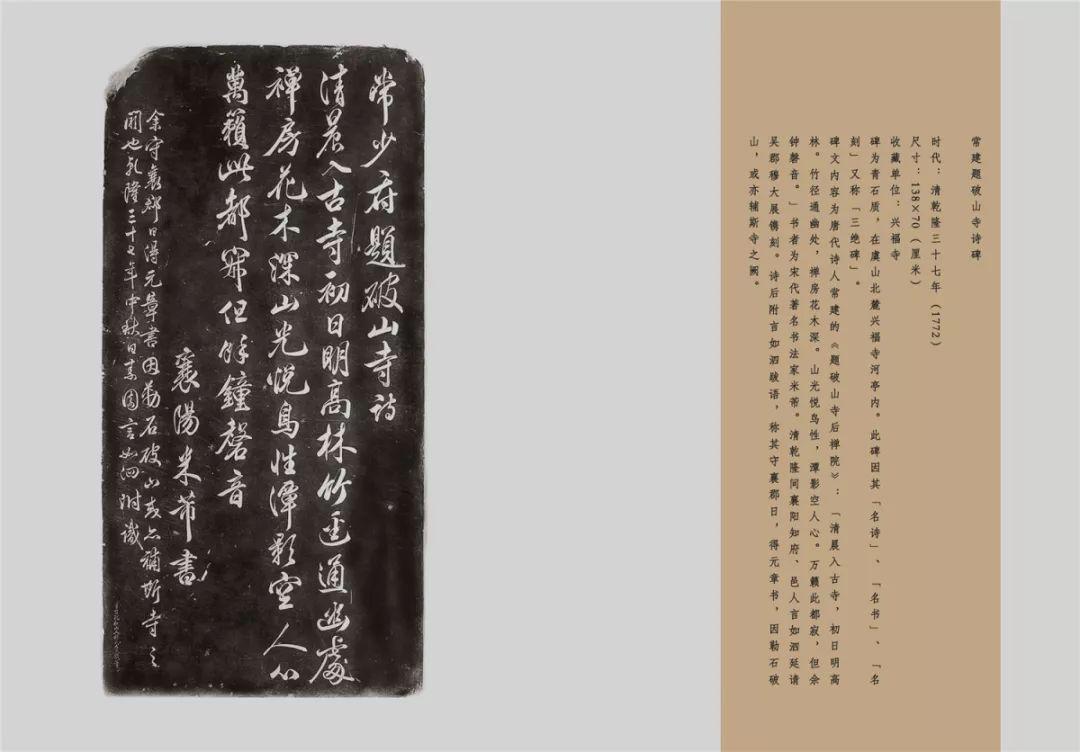 常建题破山寺诗碑
时代：清乾隆三十七年（1772）
尺寸：138×70（厘米）
收藏单位：兴福寺
碑为青石质，在虞山北麓兴福寺河亭内。此碑因其「名诗」、「名书」、「名
刻」又称「三绝碑」。
碑文内容为唐代诗人常建的《题破山寺后禅院》：「清晨入古寺，初日明高
林。竹径通幽处，禅房花木深。山光悦鸟性，潭影空人心。万籁此都寂，但余
钟磬音。」书者为宋代著名书法家米芾。清乾隆间襄阳知府、邑人言如泗延请
吴郡穆大展镌刻。诗后附言如泗跋语，称其守襄郡日，得元章书，因勒石破
山，或亦辅斯寺之阙。
常少府題破山寺詩
清晨入古寺初日明高林竹迳通幽處
禪房花木深山光悅鳥性潭影空人心
萬籟此都寂但餘鐘磬音
襄陽米芾書
余守襄郡日得元章書因勒石破山或亦補斯寺之
闕也乾隆三十七年中秋日素園言如泗附識